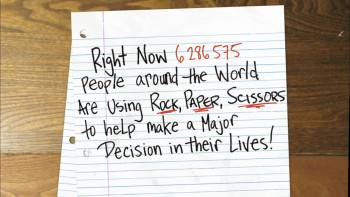 Right Now 6286575
People around the World
Are Using Rock, Paper, Scissors
to help make a Major
Decision in their Lives!